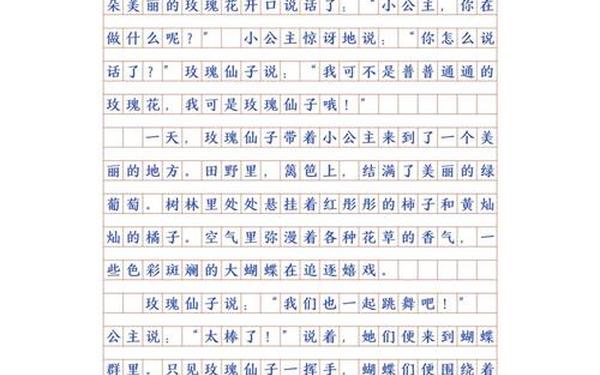 朵美丽的玫瑰花开口说话了：“小公主，你在
做什么呢？” 小公主惊讶地说：“你怎么说
话了？”玫瑰仙子说：“我可不是普普通通的
玫瑰花，我可是玫瑰仙子哦！”
一天，玫瑰仙子带着小公主来到了一个美
丽的地方。田野里，篱笆上，结满了美丽的绿
葡萄。树林里处处悬挂着红彤彤的柿子和黄灿
灿的橘子。空气里弥漫着各种花草的香气，一
些色彩斑斓的大蝴蝶在追逐嬉戏。
玫瑰仙子说：“我们也一起跳舞吧！”
公主说：“太棒了！”说着，她们便来到蝴蝶
群里。只见玫瑰仙子一挥手，蝴蝶们便围绕着